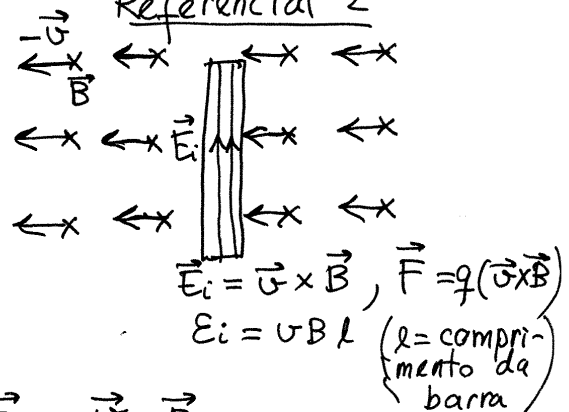 Referencial 2
-v⃗
B⃗
E⃗i
E⃗i = v⃗ × B⃗ , F⃗ = q(v⃗×B⃗)
Ei = vBl (l = compri-
mento da
barra)